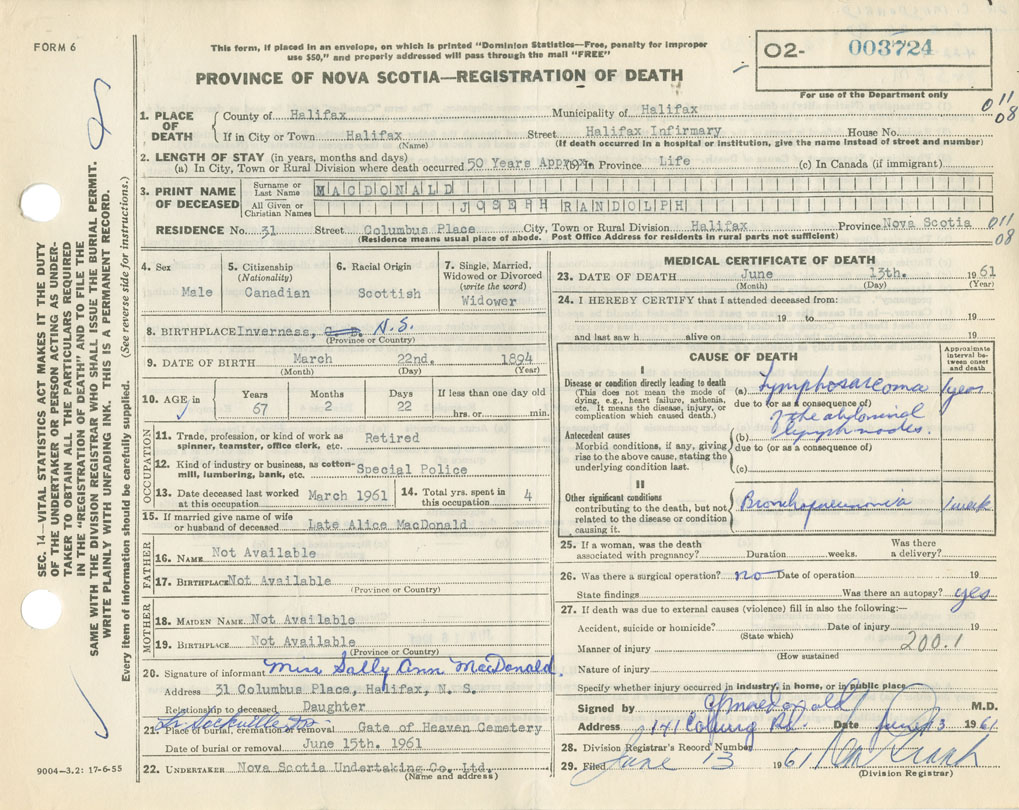 FORM 6
This form, if placed in an envelope, on which is printed "Dominion Statistics—Free, penalty for improper
use $50," and properly addressed will pass through the mail "FREE"
PROVINCE OF NOVA SCOTIA—REGISTRATION OF DEATH
O2- 003724
For use of the Department only
011
08
SEC. 14—VITAL STATISTICS ACT MAKES IT THE DUTY
OF THE UNDERTAKER OR PERSON ACTING AS UNDER-
TAKER TO OBTAIN ALL THE PARTICULARS REQUIRED
IN THE "REGISTRATION OF DEATH" AND TO FILE THE
SAME WITH THE DIVISION REGISTRAR WHO SHALL ISSUE THE BURIAL PERMIT.
WRITE PLAINLY WITH UNFADING INK. THIS IS A PERMANENT RECORD.
Every item of information should be carefully supplied. (See reverse side for instructions.)
1. PLACE OF DEATH
County of Halifax Municipality of Halifax
If in City or Town Halifax Street Halifax Infirmary House No.
(Name) (If death occurred in a hospital or institution, give the name instead of street and number)
2. LENGTH OF STAY (in years, months and days)
(a) In City, Town or Rural Division where death occurred 50 Years Approx. (b) In Province Life (c) In Canada (if immigrant)
3. PRINT NAME OF DECEASED
Surname or Last Name MACDONALD
All Given or Christian Names JOSEPH RANDOLPH
RESIDENCE No. 31 Street Columbus Place City, Town or Rural Division Halifax Province Nova Scotia
011
08
(Residence means usual place of abode. Post Office Address for residents in rural parts not sufficient)
4. Sex
Male
5. Citizenship
(Nationality)
Canadian
6. Racial Origin
Scottish
7. Single, Married,
Widowed or Divorced
(write the word)
Widower
8. BIRTHPLACE Inverness, C. B. N.S.
(Province or Country)
9. DATE OF BIRTH March 22nd. 1894
(Month) (Day) (Year)
10. AGE in Years Months Days If less than one day old
67 2 22 hrs. or min.
OCCUPATION
11. Trade, profession, or kind of work as
spinner, teamster, office clerk, etc. Retired
12. Kind of industry or business, as cotton-
mill, lumbering, bank, etc. Special Police
13. Date deceased last worked
at this occupation March 1961
14. Total yrs. spent in
this occupation 4
15. If married give name of wife
or husband of deceased Late Alice MacDonald
FATHER
16. NAME Not Available
17. BIRTHPLACE Not Available
(Province or Country)
MOTHER
18. MAIDEN NAME Not Available
19. BIRTHPLACE Not Available
(Province or Country)
20. Signature of informant Miss Sally Ann MacDonald.
Address 31 Columbus Place, Halifax, N. S.
Relationship to deceased Daughter
21. Place of burial, cremation or removal Gate of Heaven Cemetery
Date of burial or removal June 15th. 1961
22. UNDERTAKER Nova Scotia Undertaking Co. Ltd.
(Name and address)
9004—3.2: 17-6-55
MEDICAL CERTIFICATE OF DEATH
23. DATE OF DEATH June 13th. 1961
(Month) (Day) (Year)
24. I HEREBY CERTIFY that I attended deceased from:
19 to 19
and last saw h alive on 19
CAUSE OF DEATH
Approximate
interval be-
tween onset
and death
I
Disease or condition directly leading to death
(This does not mean the mode of
dying, e.g., heart failure, asthenia,
etc. It means the disease, injury, or
complication which caused death.)
(a) Lymphosarcoma 1 year
due to (or as a consequence of)
the abdominal
lymph nodes.
Antecedent causes
Morbid conditions, if any, giving
rise to the above cause, stating the
underlying condition last.
(b)
due to (or as a consequence of)
(c)
II
Other significant conditions
contributing to the death, but not
related to the disease or condition
causing it.
Bronchopneumonia 1 week
25. If a woman, was the death
associated with pregnancy? Duration weeks. Was there
a delivery?
26. Was there a surgical operation? no Date of operation 19
State findings Was there an autopsy? yes
27. If death was due to external causes (violence) fill in also the following:—
Accident, suicide or homicide? Date of injury 19
(State which)
Manner of injury 200.1
(How sustained
Nature of injury
Specify whether injury occurred in industry, in home, or in public place
Signed by M.D.
Address 141 Coburg Rd. Date June 13 1961
28. Division Registrar's Record Number
29. Filed June 13 1961
(Division Registrar)